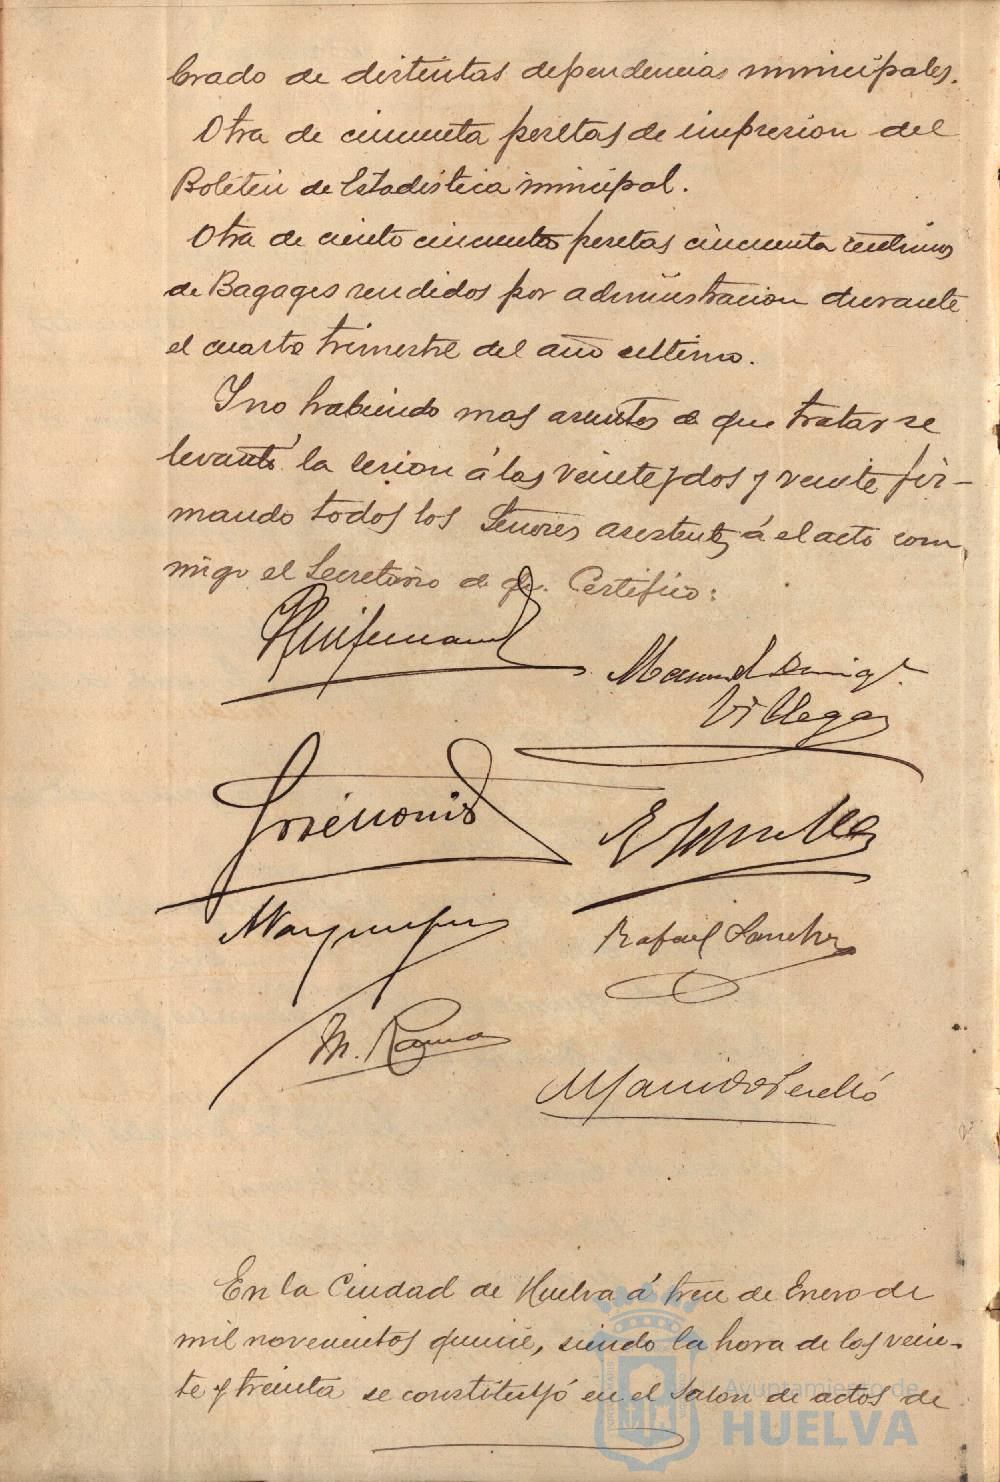 brado de distintas dependencias municipales.
Otra de cincuenta pesetas de impresion del
Boletin de Estadistica municipal.
Otra de ciento cincuenta pesetas cincuenta centimos
de Bagages rendidos por administracion durante
el cuarto trimestre del año ultimo.
Y no habiendo mas asuntos de que tratar se
levantó la sesion á las veinte y dos y veinte fir-
mando todos los Señores asistentes á el acto con-
migo el Secretario de que Certifico:
Manuel
Villegas
Rafael Sanchez
M.
En la Ciudad de Huelva á trece de Enero de
mil novecientos quince, siendo la hora de las vein-
te y treinta se constituyó en el Salon de actos de
Ayuntamiento de
HUELVA